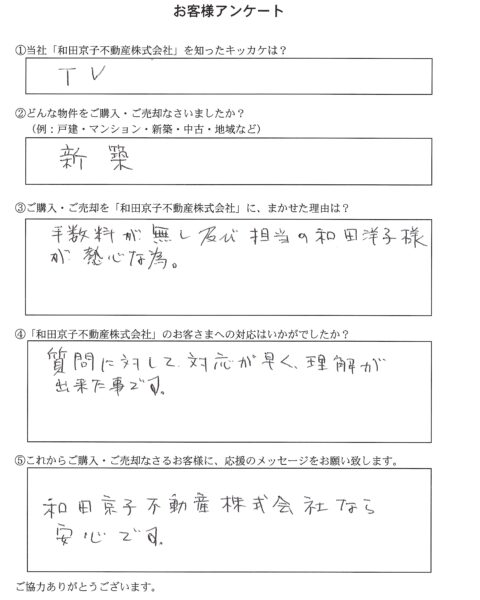 お客様アンケート
①当社「和田京子不動産株式会社」を知ったキッカケは？
TV
②どんな物件をご購入・ご売却なさいましたか？
（例：戸建・マンション・新築・中古・地域など）
新築
③ご購入・ご売却を「和田京子不動産株式会社」に、まかせた理由は？
手数料が無し及び担当の和田洋子様
が熱心な為。
④「和田京子不動産株式会社」のお客さまへの対応はいかがでしたか？
質問に対して対応が早く、理解が
出来た事です。
⑤これからご購入・ご売却なさるお客様に、応援のメッセージをお願い致します。
和田京子不動産株式会社なら
安心です。
ご協力ありがとうございます。